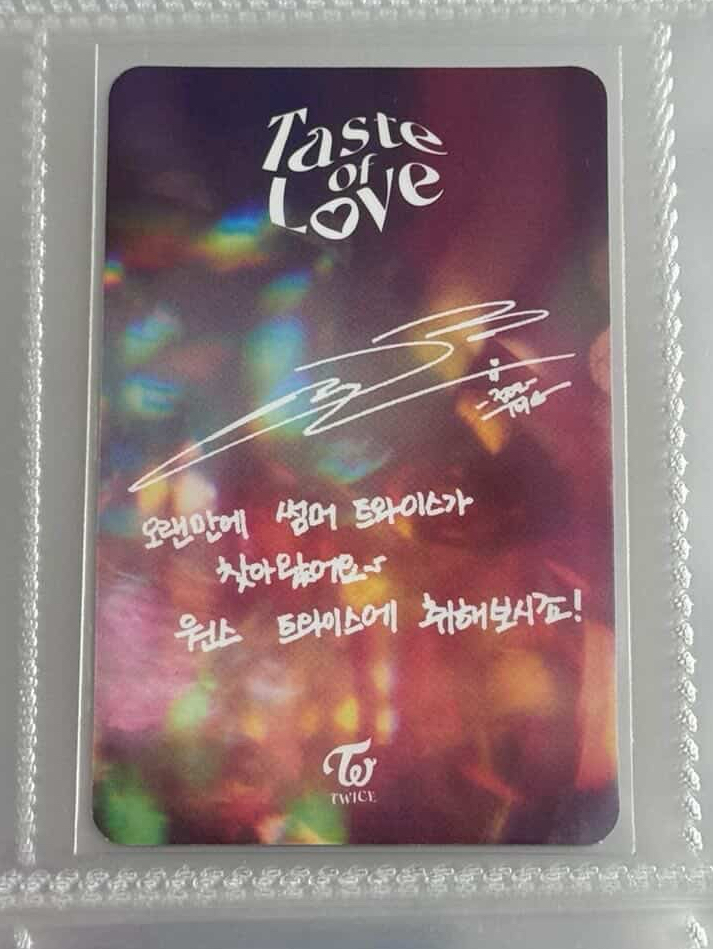 Taste
of
Love
오랜만에 썸머 트와이스가
찾아왔어요~
원스 트와이스에 취해보시죠!
TWICE